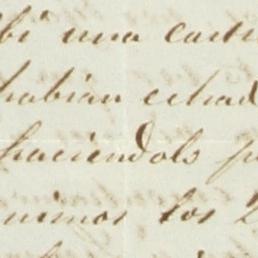 bi una carta
habian echad
haciendols p
nimos los 2